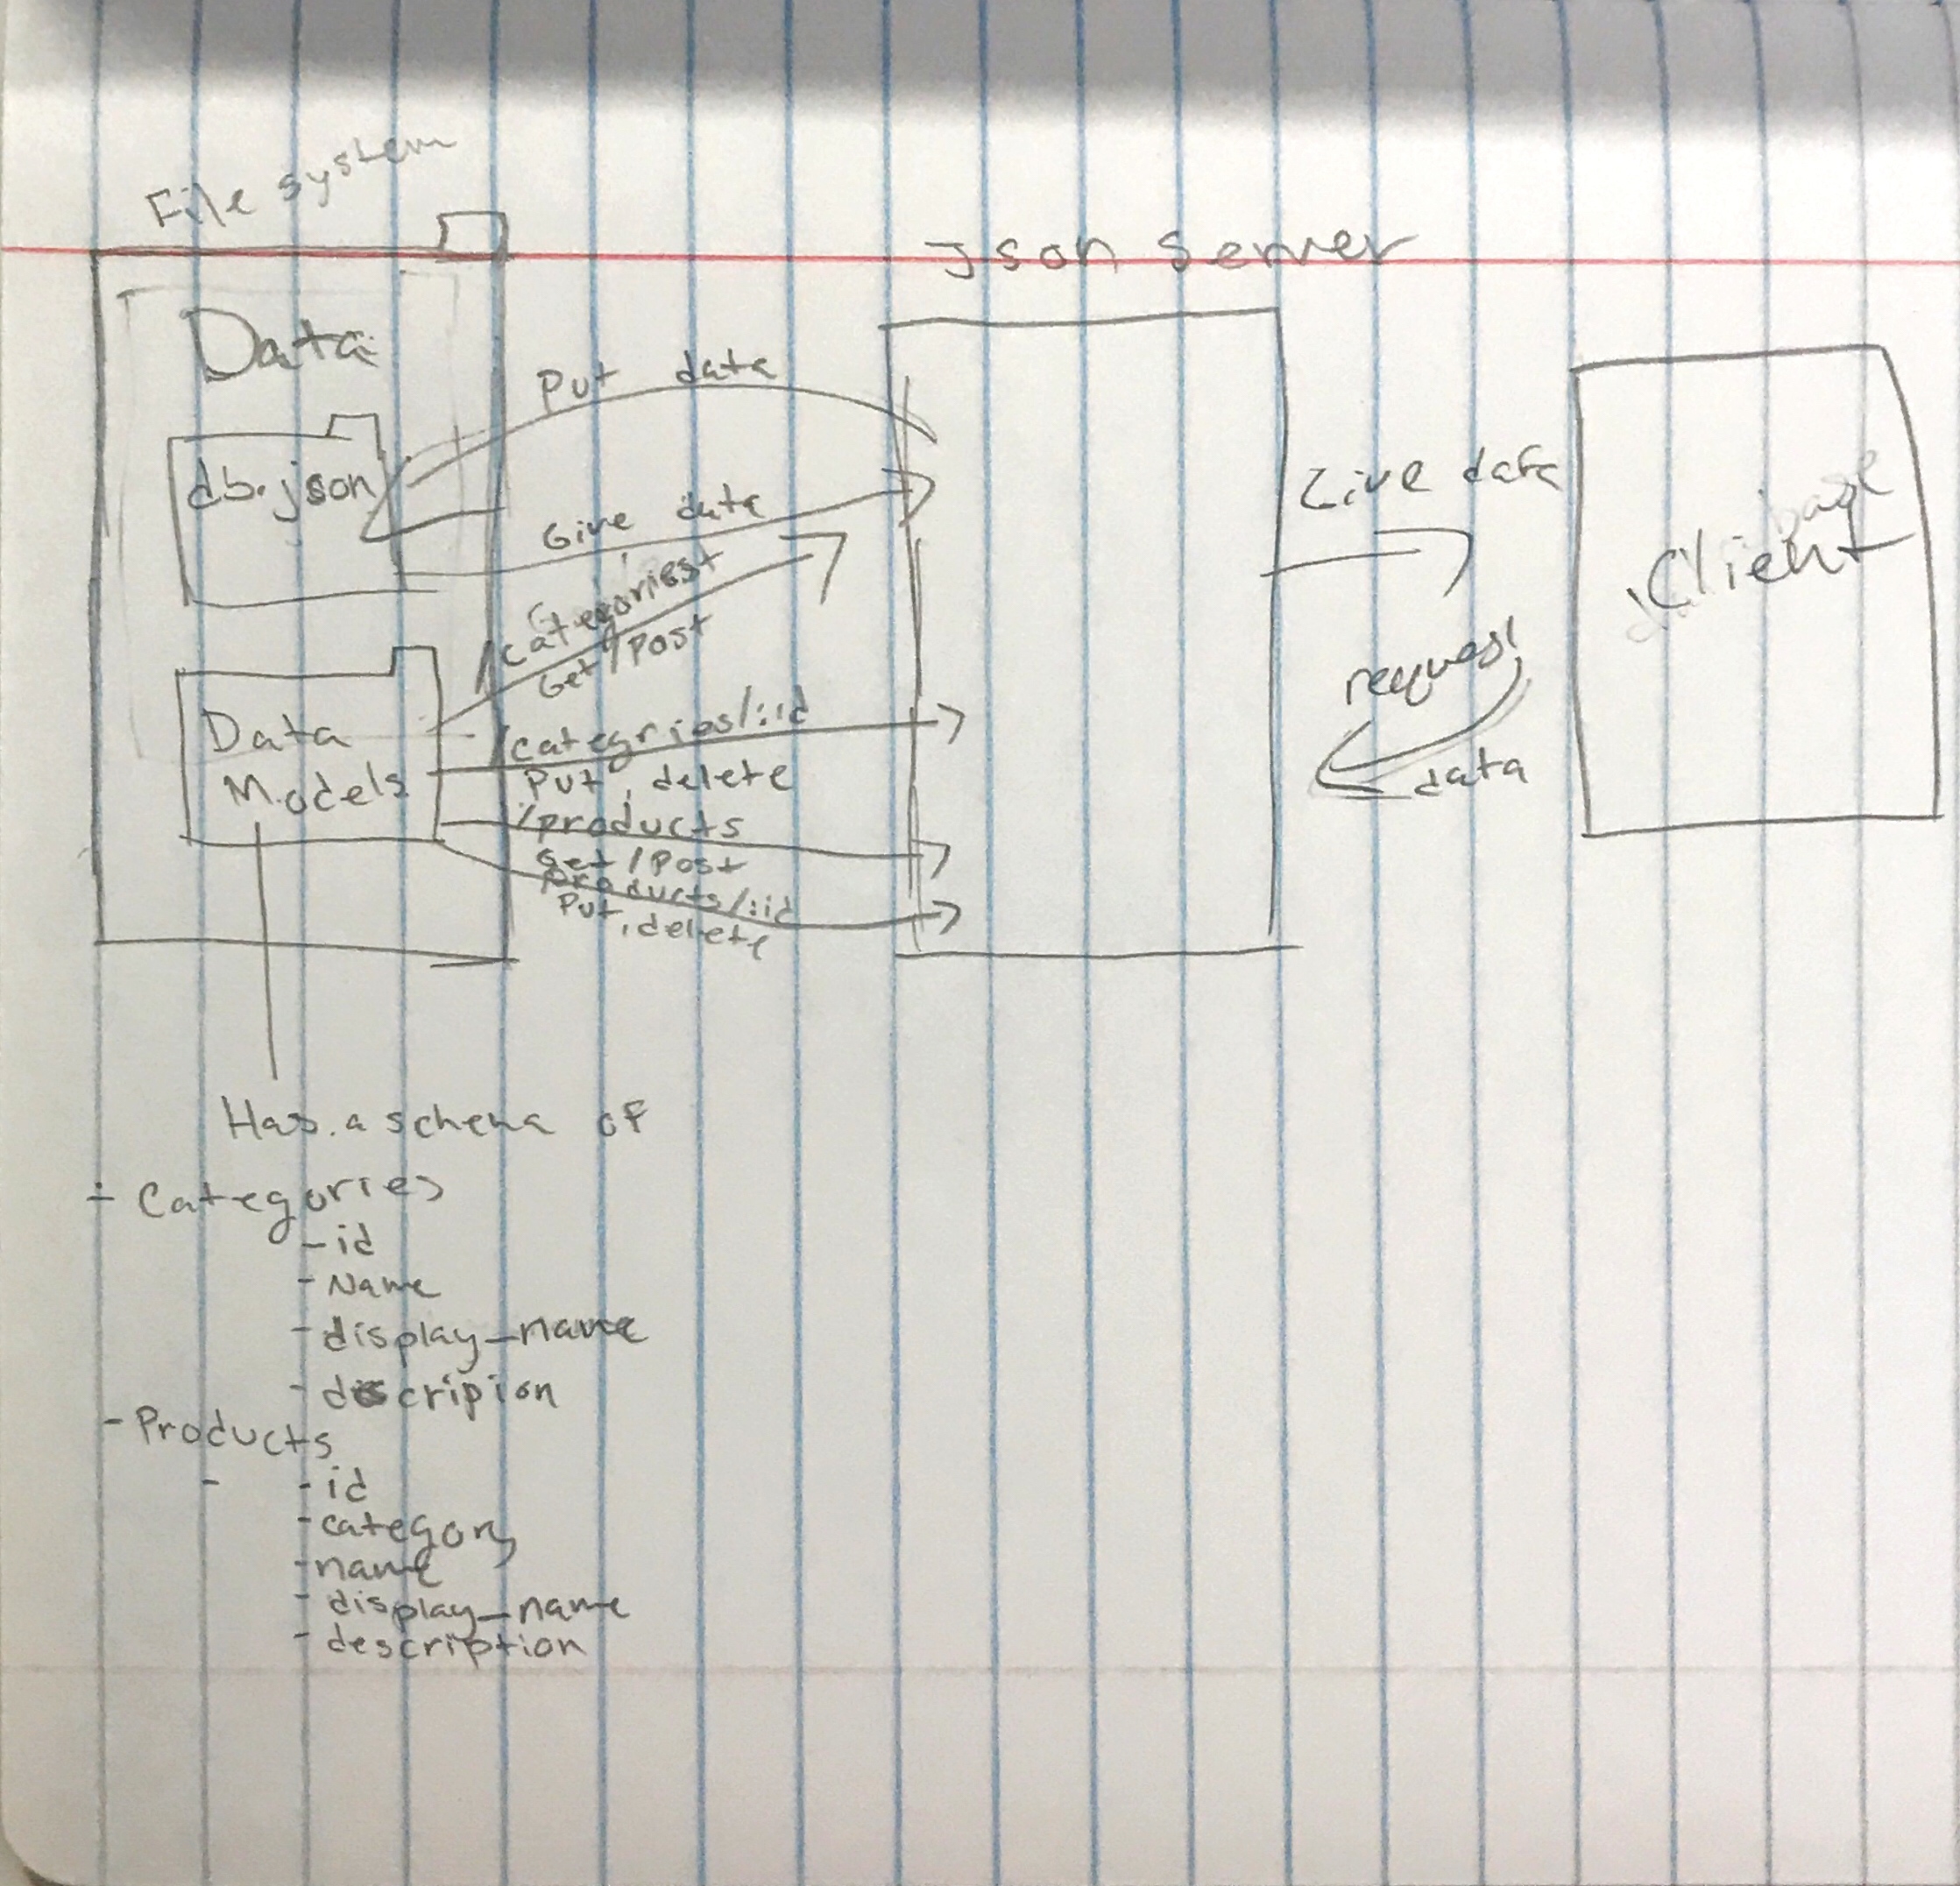 File system
Json Server
Data
Put data
db.json
Give data
/categories
Get/Post
Data
Models
/categries/:id
Put, delete
/products
Get/Post
products/:id
Put, delete
Give data
request
data
Client
Has a schema of
- Categories
- id
- Name
- display_name
- descripion
- Products
- - id
- category
- name
- display_name
- description